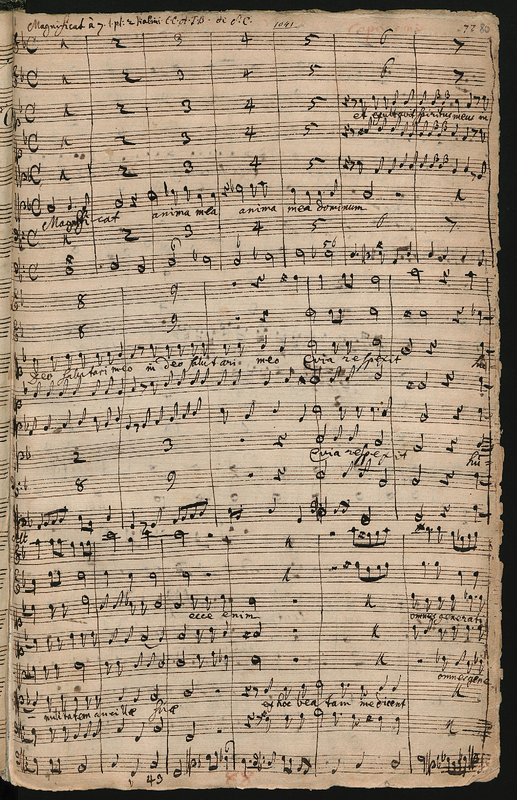 Magnificat à 7. l. pl. 2 Violini CC A T B. di S. C.
1 2 3 4 5 6 7
1 2 3 4 5 6 7
1 2 3 4 5
et exultavit spiritus meus in
1 2 3 4 5
1 2 3 4 5
Magnificat anima mea anima mea dominum
1 2 3 4 5 6 7
8 9
8 9
deo salutari meo in deo salutari meo Quia respexit hu
2 3
Quia respexit hu
8 9
ecce enim omnes generati
omnes gene
militatem ancillæ suæ ex hoc beatam me dicent
43